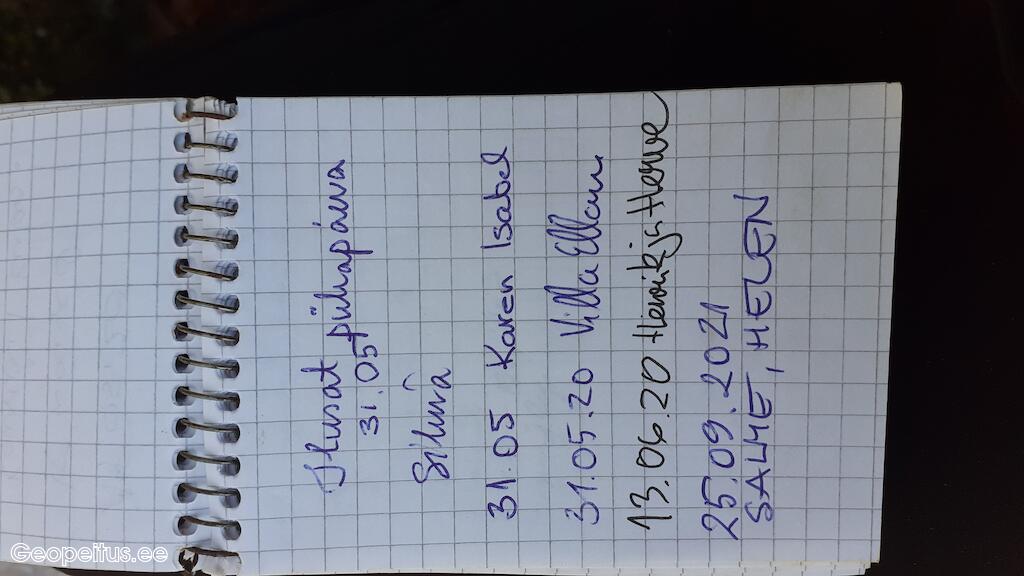 Ilusat pühapäeva
31.05
31.05 Karen Isabel
31.05.20 Villa Ellam
13.06.20 Henrik ja Herve
25.09.2021
SALME, HELEN
Geopeitus.ee